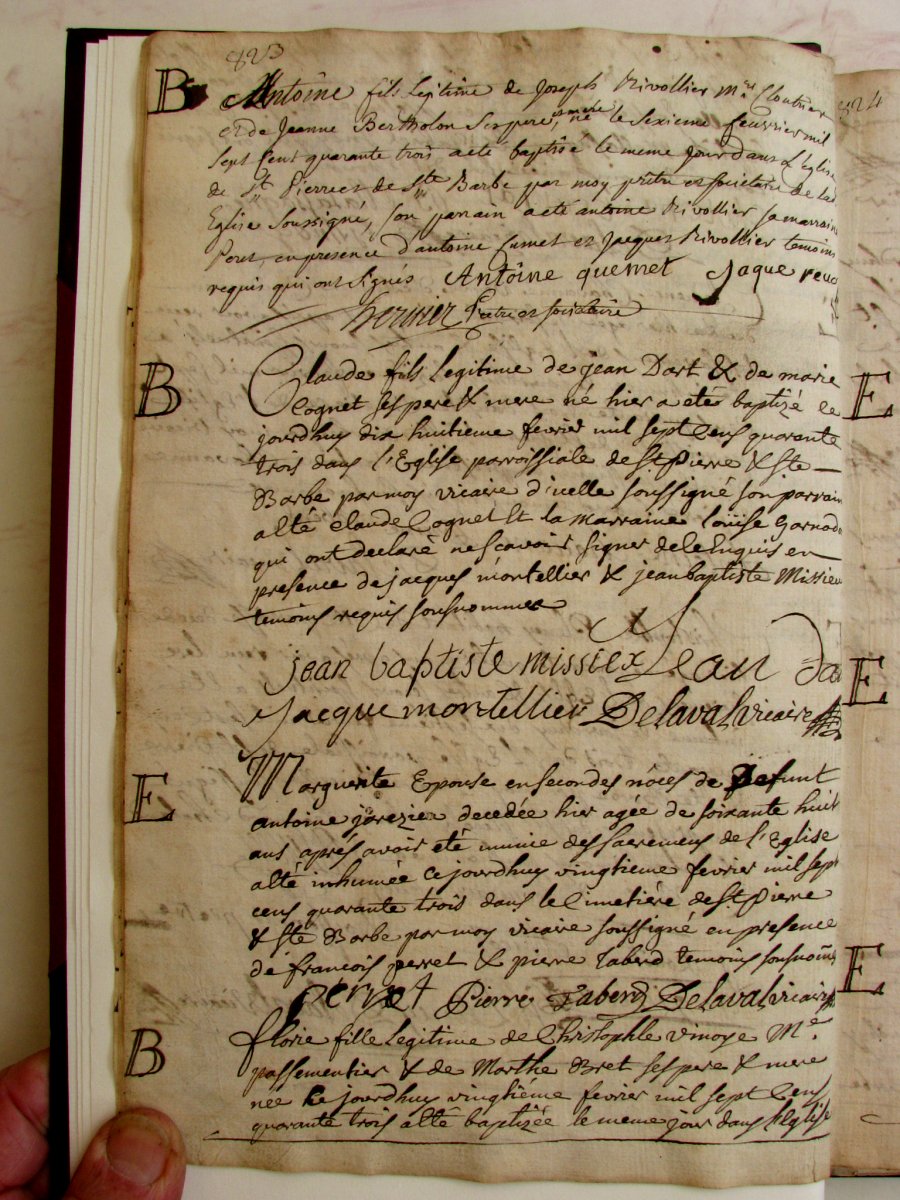 823
824
B
Antoine fils legitime de Joseph Rivollier Me Cloutrier
et de Jeanne Bertholon ses pere, et mere né le sexieme feuvrier mil
sept cent quarante trois a eté baptisé le meme jour dans l'Eglise
de St Pierre et de Ste Barbe par moy prêtre et societaire de lad
Eglise soussigné, son parrain a eté antoine Rivollier sa marraine
Peret, en presence d'antoine Cumet et Jacques Rivollier temoins
requis qui ont signés Antoine quemet Jaque revo
hervier Prêtre et societaire
B
Claude fils legitime de jean Dart & de marie
Cognet ses peré & mere né hier a eté baptizé ce
jourdhuy dix huitieme fevrier mil sept cens quarante
trois dans l'Eglise parroissiale de St pierre & Ste
Barbe par moy vicaire d'icelle soussigné son parrain
a été claude Cognet Et la Marraine loüise
qui ont declaré ne scavoir signer de ce Enquis en
presence de jacques montellier & jean baptiste Missieu
temoins requis sousnommes
jean baptiste missiex Jean da
Jacque montellier Delaval vicaire
E
Marguerite Epouse en secondes nôces de Defunt
antoine jarezier decedée hier agée de soixante huit
ans aprés avoir eté munie des sacremens de l'Eglise
a été inhumée ce jourdhuy vingtieme fevrier mil sept
cens quarante trois dans le Cimetiére de St pierre
& Ste Barbe par moy vicaire soussigné en presence
de francois perret & pierre taberd temoins sousnom̃és
peryet Pierre Taberd Delaval vicaire
B
florie fille legitime de Christophle vinoye Me
passementier & de Marthe Bret ses pere & mere
née ce jourdhuy vingtiéme fevrier mil sept Cens
quarante trois a été baptizée le meme jour dans l'Eglise
E
E
E